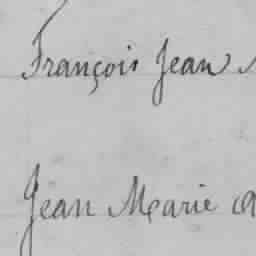 François Jean
Jean Marie